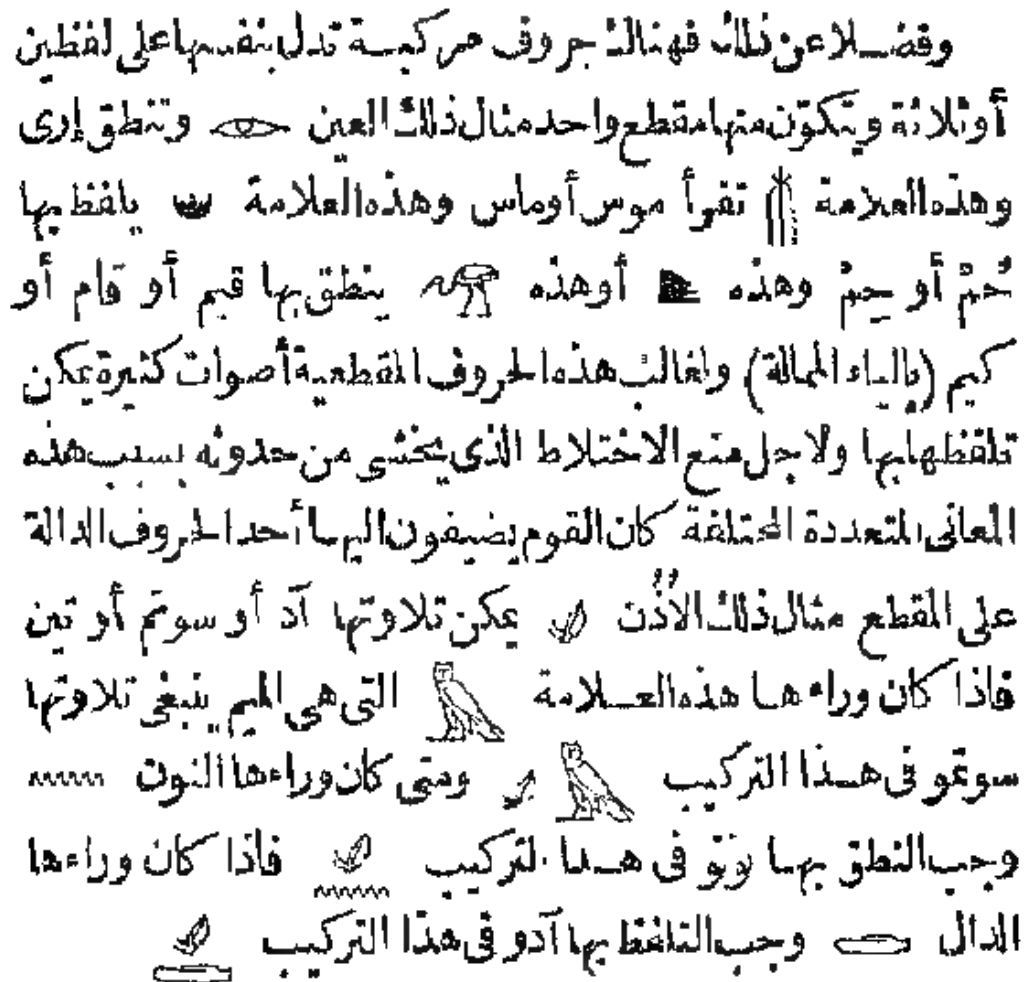 وفضلا عن ذلك فهنالك حروف مركبة تدل بنفسها على لفظين
أو ثلاثة ويتكوّن منها مقطع واحد مثال ذلك العين 𓁹 وتنطق إرى
وهذه العلامة 𓄟 تقرأ موس أو ماس وهذه العلامة يلفظ بها
حُمْ أو حِمْ وهذه أو هذه 𓅠 ينطق بها قيم أو قام أو
كيم (بالياء الممالة) ولغالب هذه الحروف المقطعية أصوات كثيرة يمكن
تلفظها بها ولاجل منع الاختلاط الذى يخشى من حدوثه بسبب هذه
المعانى المتعددة المختلفة كان القوم يضيفون اليها أحد الحروف الدالة
على المقطع مثال ذلك الاُذُن 𓄔 يمكن تلاوتها آد أو سوتم أو تين
فاذا كان وراءها هذه العلامة 𓅓 التى هى الميم ينبغى تلاوتها
سوتمو فى هذا التركيب 𓅓 𓄔 ومتى كان وراءها النون 𓈖
وجب النطق بها فى هذا التركيب 𓄔𓈖 فاذا كان وراءها
الدال 𓂧 وجب التلفظ بها آدو فى هذا التركيب 𓄔𓂧